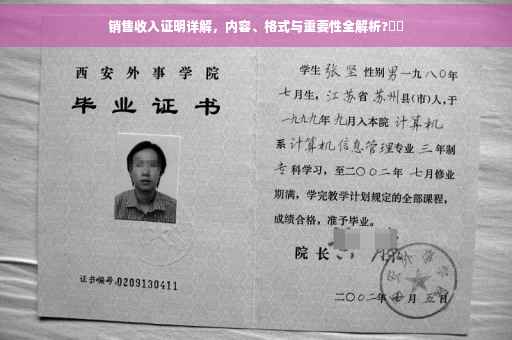 销售收入证明详解，内容、格式与重要性全解析?
西安外事学院
毕业证书
证书编号:0209130411
学生 张坚 性别 男 一九八〇年
七月生，江苏省 苏州 县(市)人，于
一九九九年 九月入本院 计算机
系 计算机信息管理 专业 三 年制
专 科学习，至二〇〇二年 七月修业
期满，学完教学计划规定的全部课程，
成绩合格，准予毕业。
院 长
二〇〇二年 月 五 日